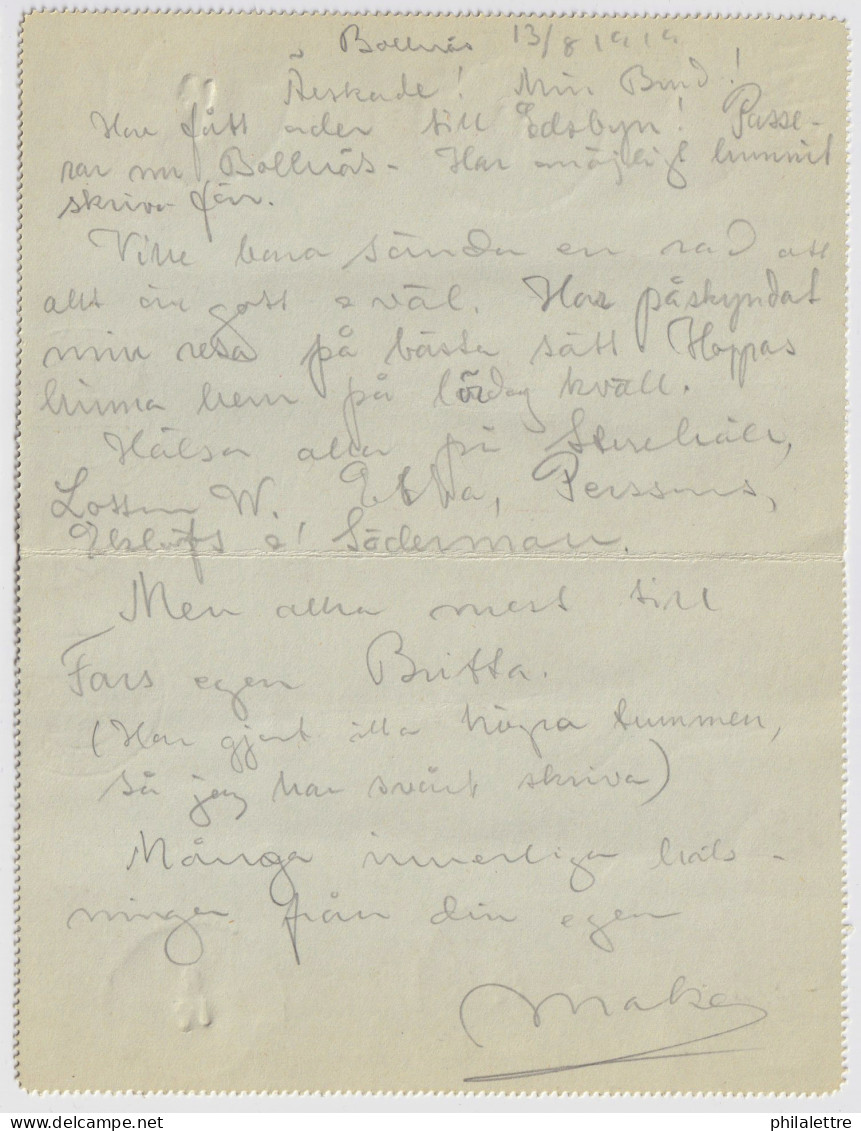 Bollnäs 13/8 1919
Älskade! Min Brud!
Har fått order till Edsbyn! Passe-
rar nu Bollnäs - Har möjligt hunnit
skriva förr.
Ville bara sända en rad att
allt är gott o väl. Har påskyndat
min resa på bästa sätt. Hoppas
hinna hem på lördag kväll.
Hälsa alla på
W. Ebba, Perssons,
o Söderman.
Men allra mest till
Fars egen Britta.
(Har gjort illa högra tummen,
så jag har svårt skriva)
Många innerliga häls-
ningar från din egen
Make
philalettre